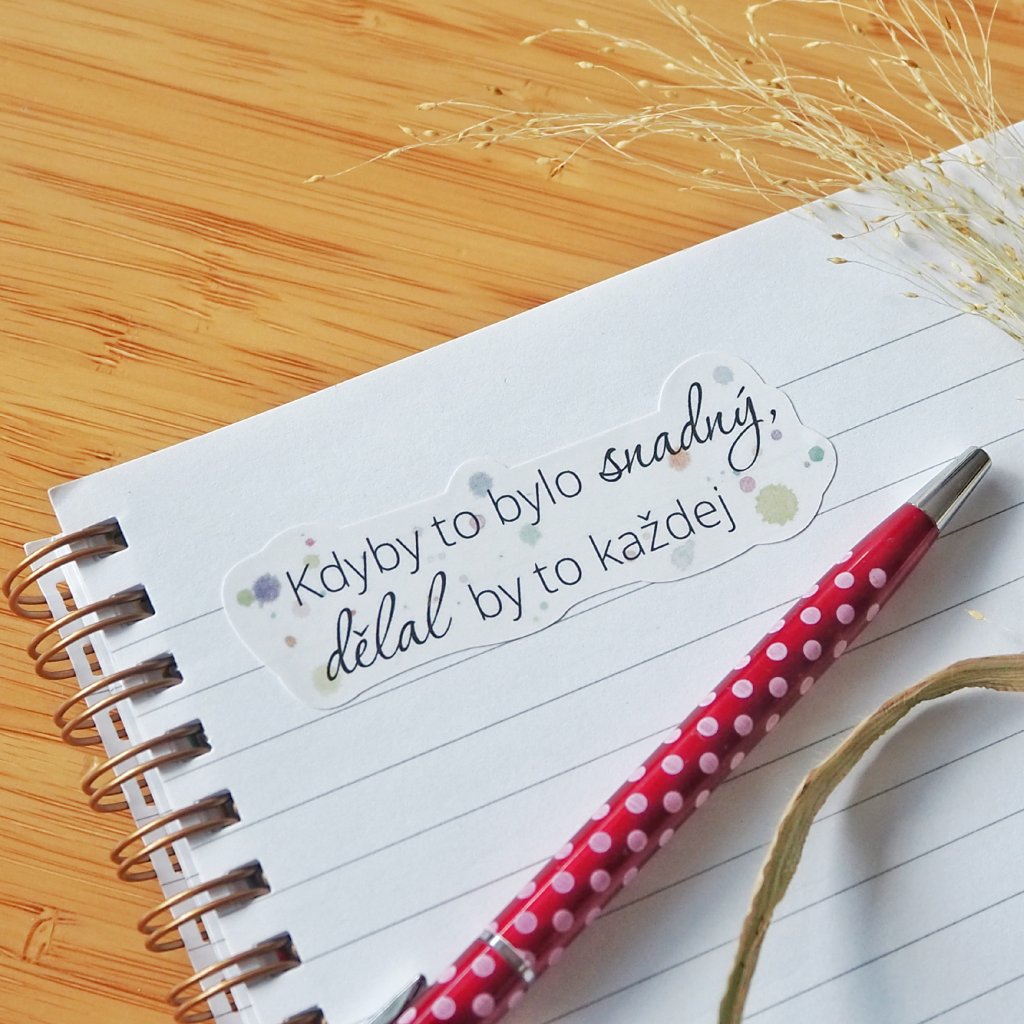 Kdyby to bylo snadný,
dělal by to každej